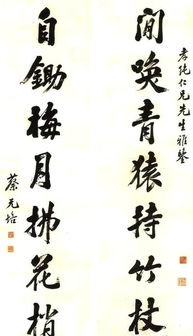 孝純仁兄先生雅鑒
閒喚青猿持竹杖
自鋤梅月拂花梢
蔡元培